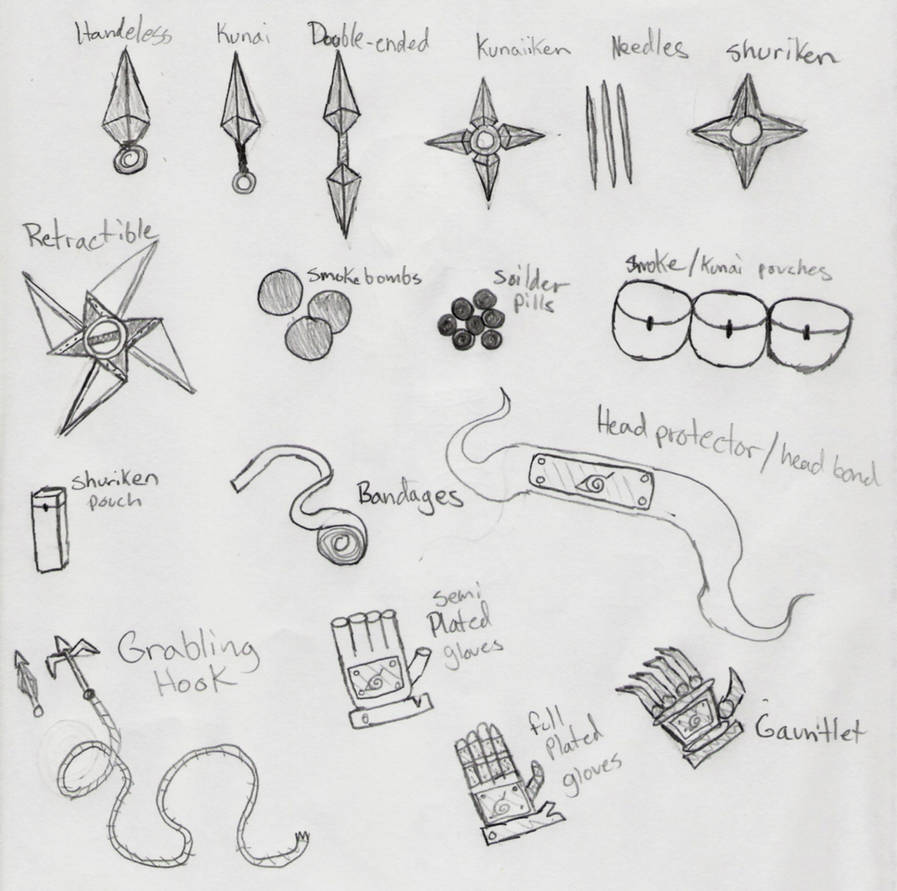 Handeless
Kunai
Double-ended
Kunaiiken
Needles
shuriken
Retractible
smokebombs
soilder
pills
smoke/kunai pouches
Head protector/head band
shuriken
pouch
Bandages
semi
Plated
gloves
Grabling
Hook
full
Plated
gloves
Gauntlet